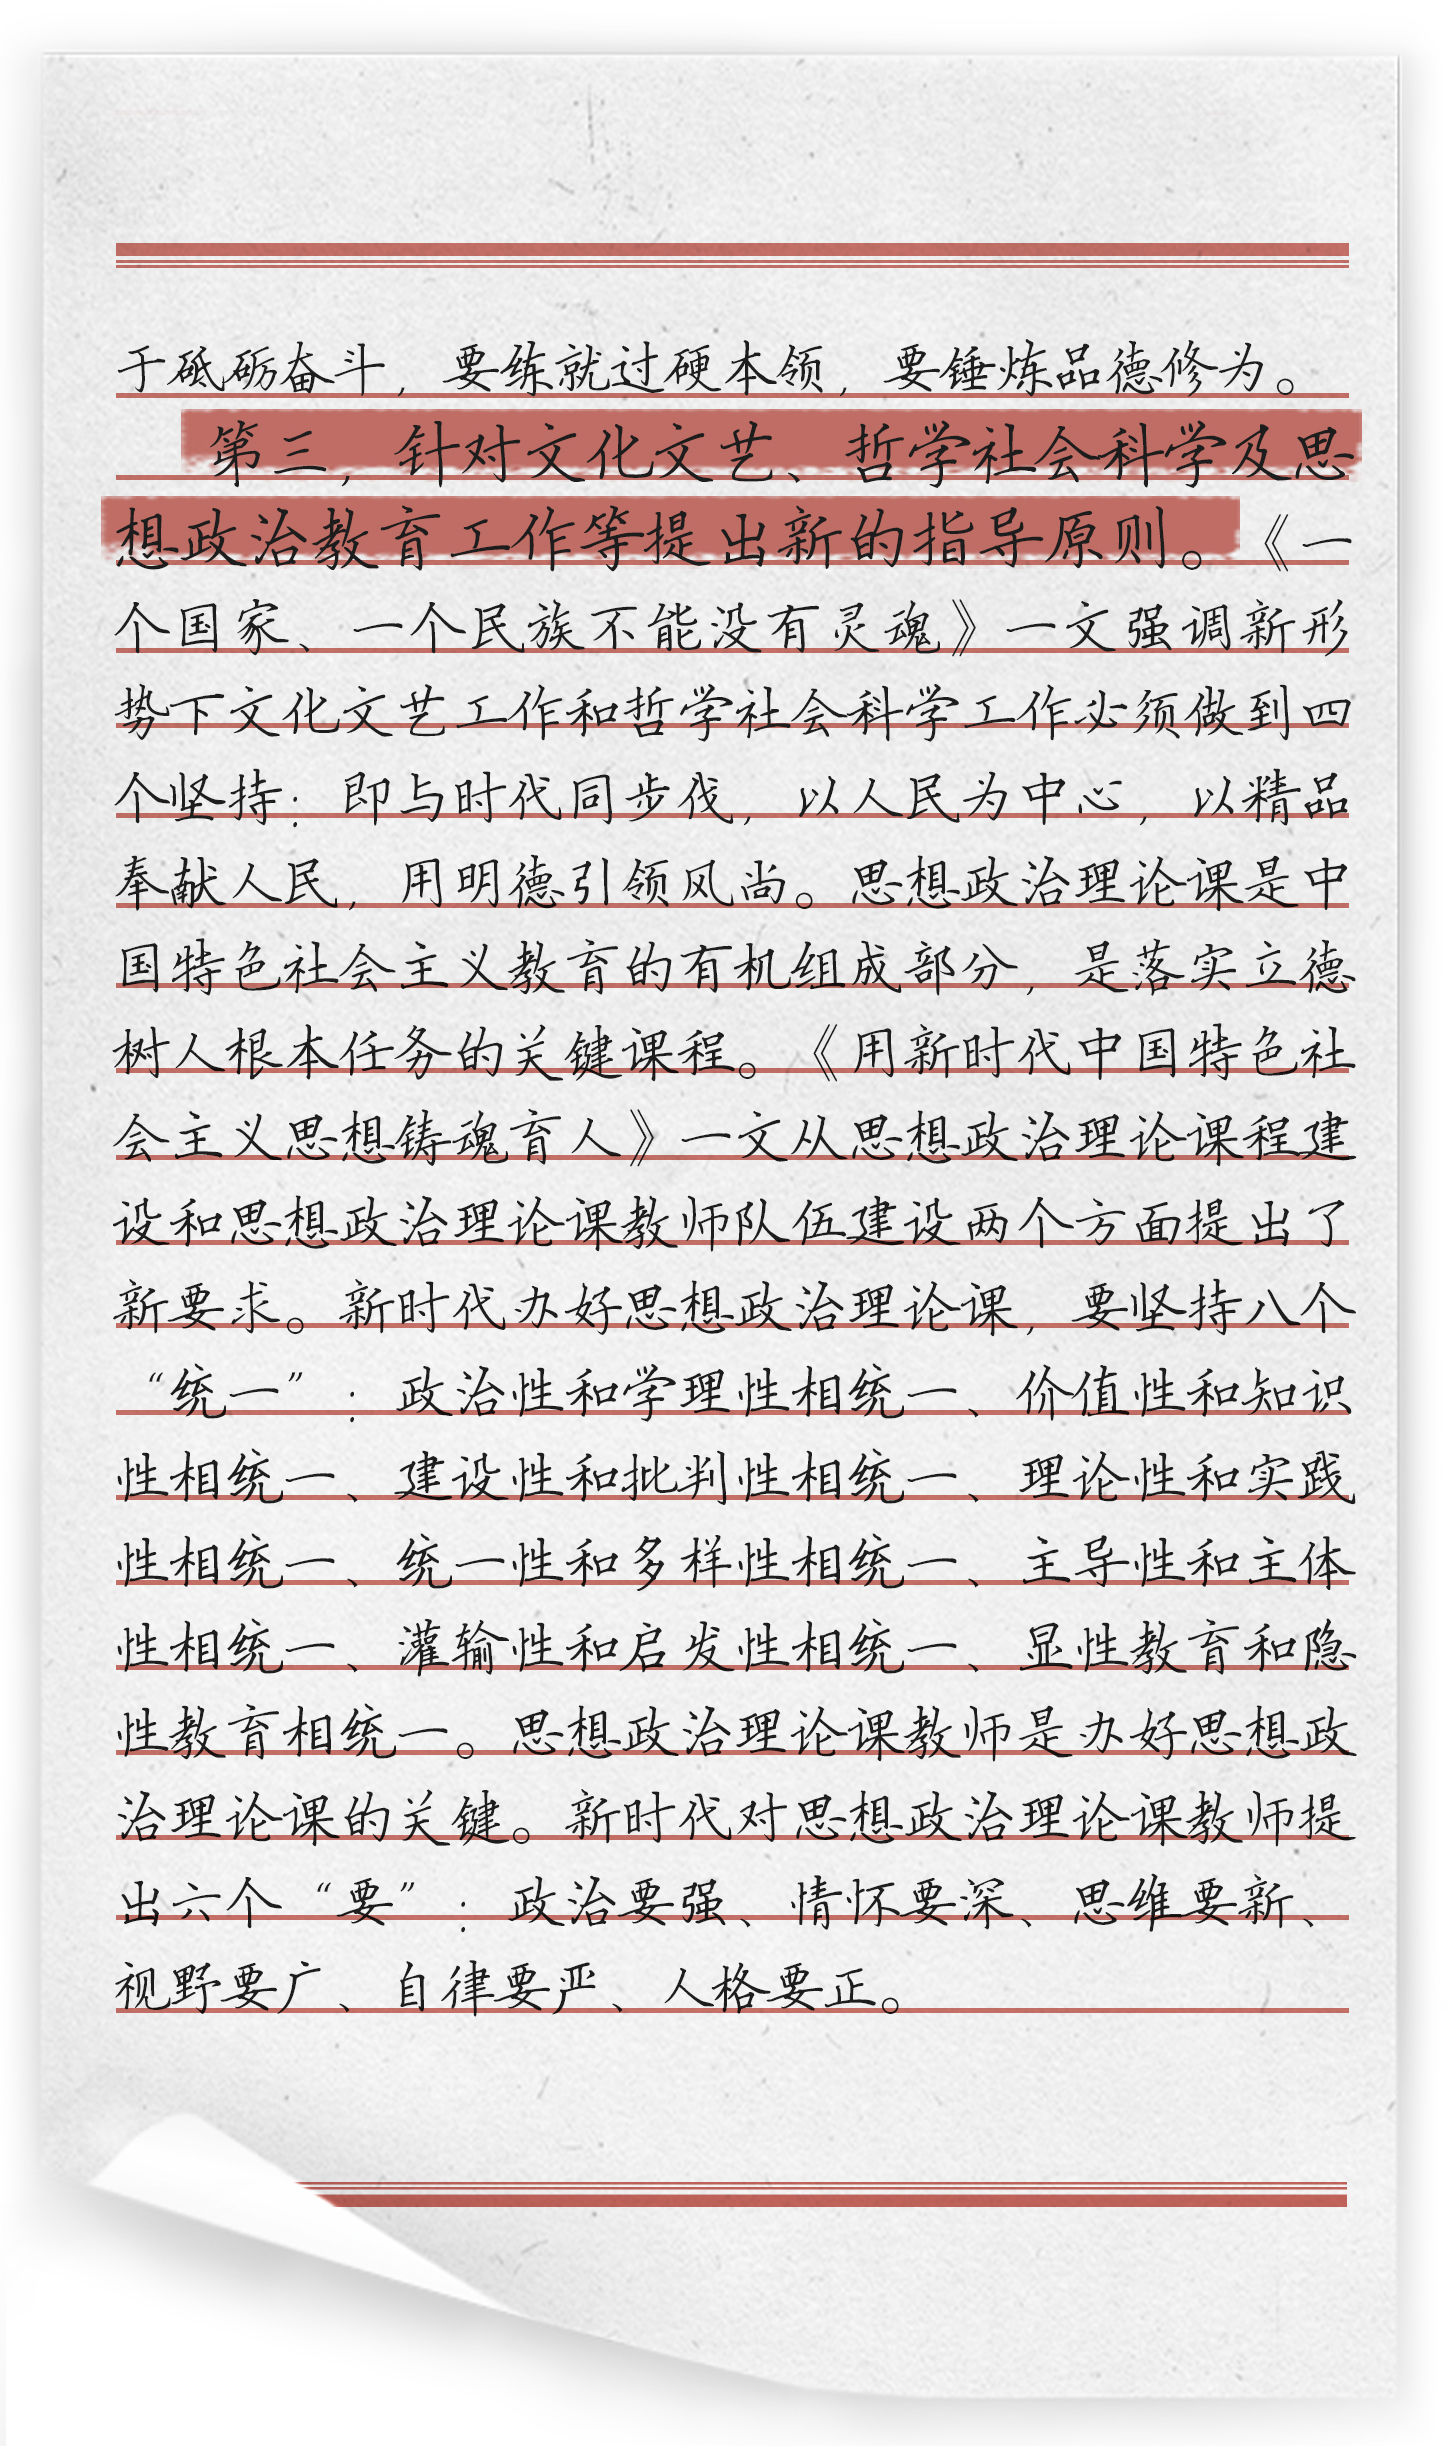 于砥砺奋斗，要练就过硬本领，要锤炼品德修为。
第三，针对文化文艺、哲学社会科学及思
想政治教育工作等提出新的指导原则。《一
个国家、一个民族不能没有灵魂》一文强调新形
势下文化文艺工作和哲学社会科学工作必须做到四
个坚持：即与时代同步伐，以人民为中心，以精品
奉献人民，用明德引领风尚。思想政治理论课是中
国特色社会主义教育的有机组成部分，是落实立德
树人根本任务的关键课程。《用新时代中国特色社
会主义思想铸魂育人》一文从思想政治理论课程建
设和思想政治理论课教师队伍建设两个方面提出了
新要求。新时代办好思想政治理论课，要坚持八个
“统一”：政治性和学理性相统一、价值性和知识
性相统一、建设性和批判性相统一、理论性和实践
性相统一、统一性和多样性相统一、主导性和主体
性相统一、灌输性和启发性相统一、显性教育和隐
性教育相统一。思想政治理论课教师是办好思想政
治理论课的关键。新时代对思想政治理论课教师提
出六个“要”：政治要强、情怀要深、思维要新、
视野要广、自律要严、人格要正。